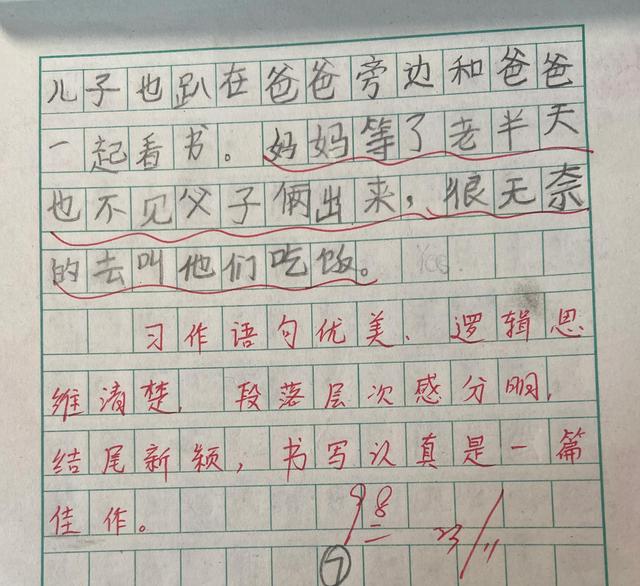 儿子也趴在爸爸旁边和爸爸
一起看书。妈妈等了老半天
也不见父子俩出来，很无奈
的去叫他们吃饭。
习作语句优美、逻辑思
维清楚，段落层次感分明，
结尾新颖，书写认真是一篇
佳作。
98 23/11
7